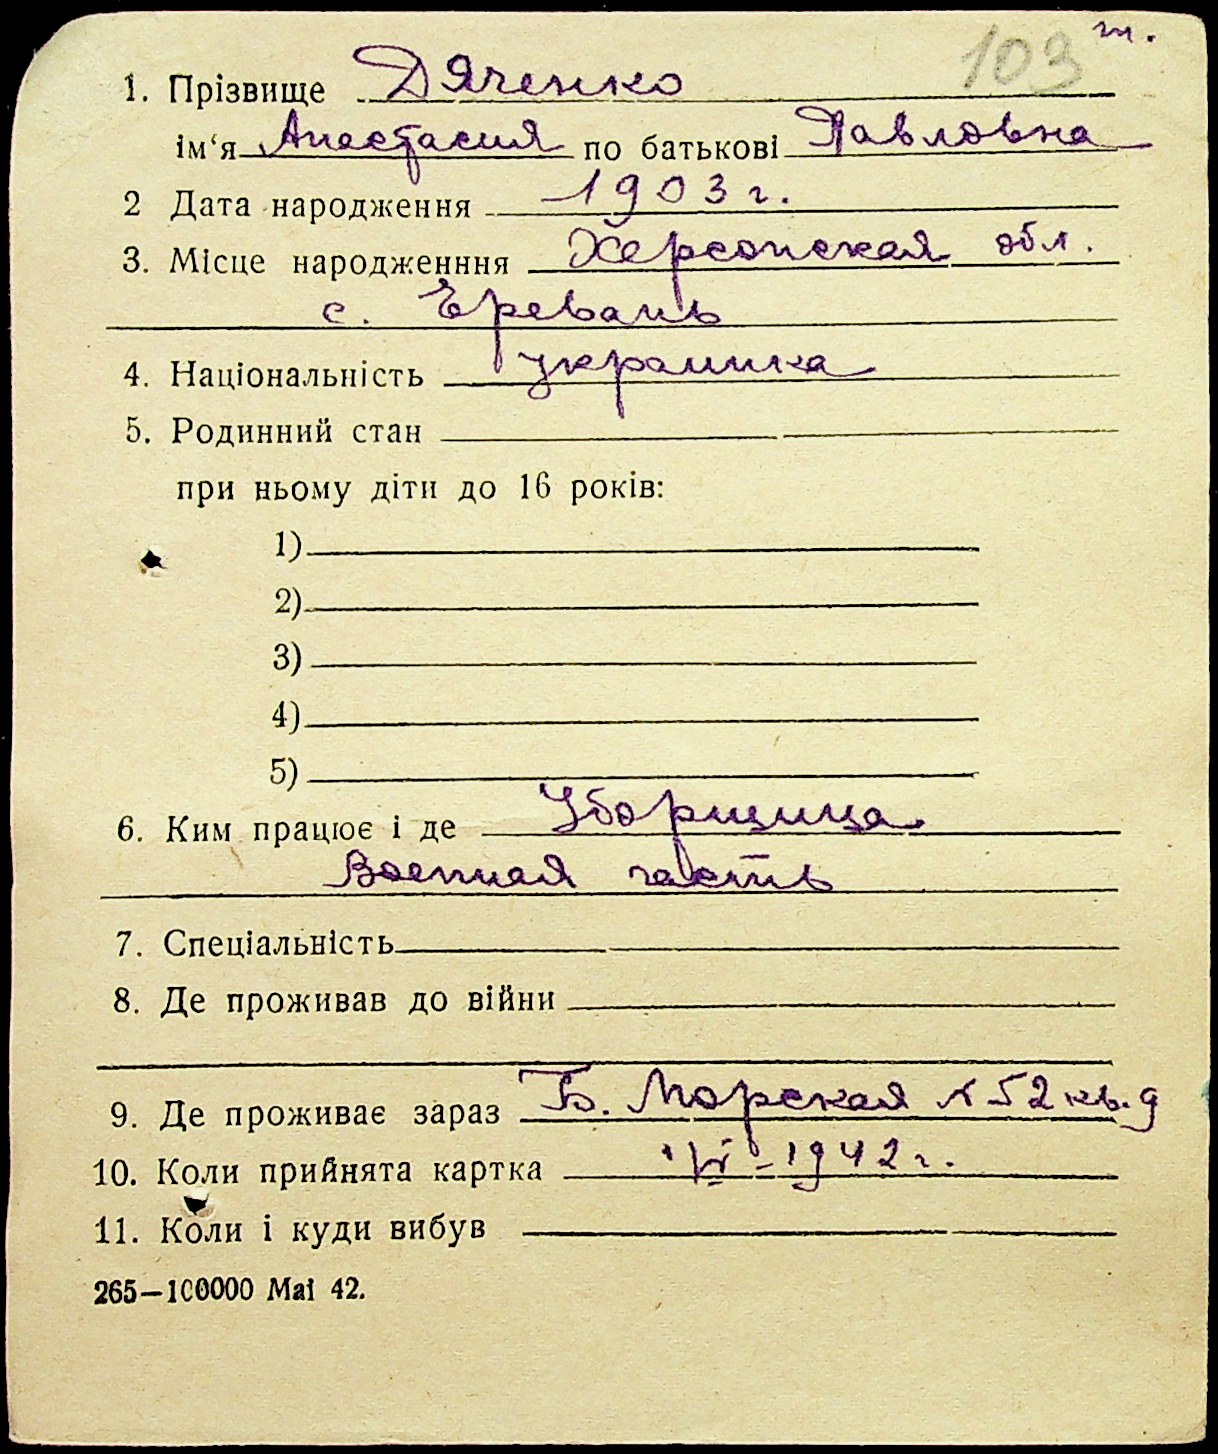 103 т.
1. Прізвище Дяченко
ім‘я Анастасия по батькові Павловна
2 Дата народження 1903 г.
3. Місце народженння Херсонская обл.
с. Еревань
4. Національність украинка
5. Родинний стан
при ньому діти до 16 років:
1)
2)
3)
4)
5)
6. Ким працює і де Уборщица
Военная часть
7. Спеціальність
8. Де проживав до війни
9. Де проживає зараз Б. Морская № 52 кв. 9
10. Коли прийнята картка VI - 1942 г.
11. Коли і куди вибув
265—100000 Mai 42.